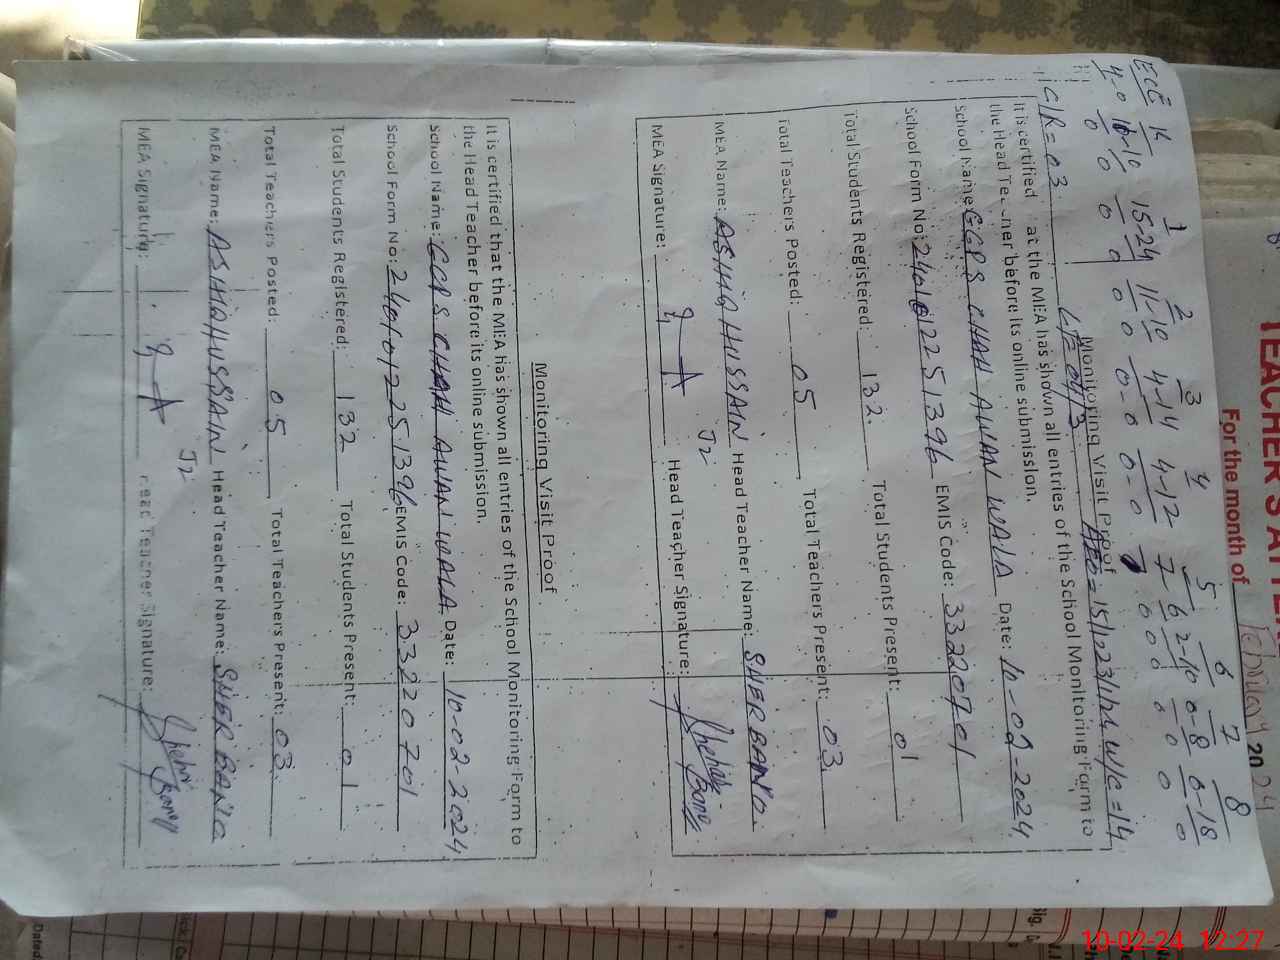 ECE K 1 2 3 4 5 6 7 8
4-0 10-10 15-24 11-10 4-14 4-12 7 6 2-10 0-8 0-18
0 0 0 0 0 0-0 0-0 0 0 0 0 0
C/R=03 LTE 04/3 AEO=15/12/23/1/24 W/C=14
Monitoring Visit Proof
It is certified at the MEA has shown all entries of the School Monitoring Form to
the Head Teacher before its online submission.
School Name: GGPS CHAH AWAN WALA Date: 10-02-2024
School Form No: 24010122 51396 EMIS Code: 33220701
Total Students Registered: 132 Total Students Present: 01
Total Teachers Posted: 05 Total Teachers Present: 03
J2
MEA Name: ASHIQ HUSSAIN Head Teacher Name: SHER BANO
MEA Signature: Head Teacher Signature: Sheher Bano
Monitoring Visit Proof
It is certified that the MEA has shown all entries of the School Monitoring Form to
the Head Teacher before its online submission.
School Name: GGPS CHAH AWAN WALA Date: 10-02-2024
School Form No: 2401012251396 EMIS Code: 33220701
Total Students Registered: 132 Total Students Present: 01
Total Teachers Posted: 05 Total Teachers Present: 03
J2
MEA Name: ASHIQ HUSSAIN Head Teacher Name: SHER BANO
MEA Signature: Head Teacher Signature: Sheher Bano
TEACHER'S
For the month of February 2024
Dated
10-02-24 12:27